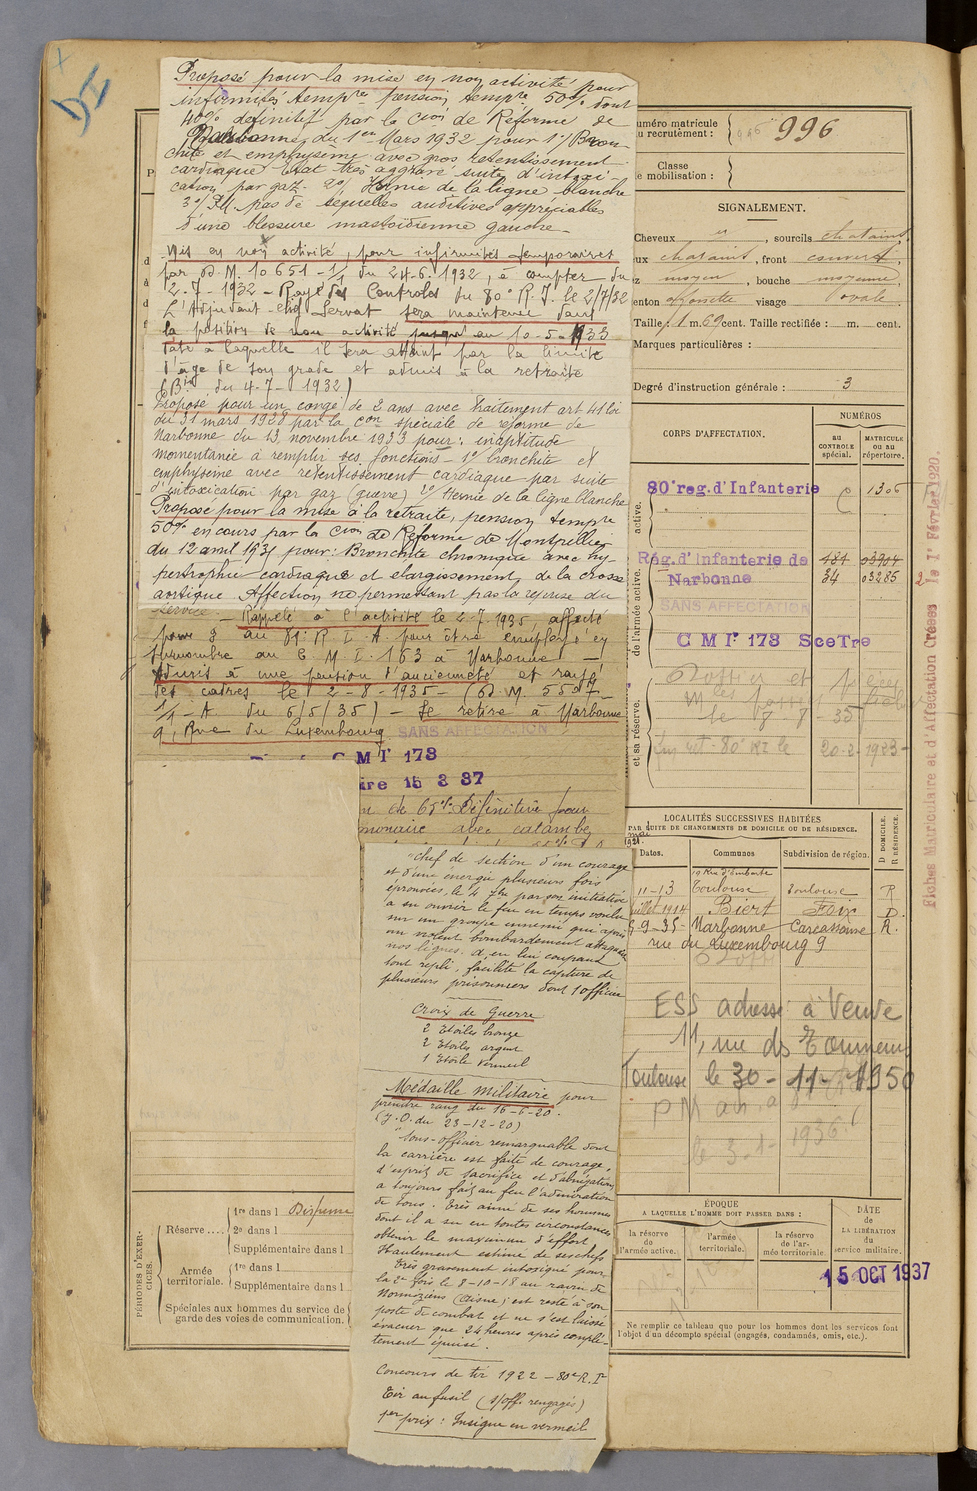 DI
Proposé pour la mise en non activité pour
infirmités temp^res pension temp^re 50% dont
40% definitif par la C^ion de Réforme de
Narbonne, du 1er Mars 1932 pour 1°/ Bron-
chite et emphyseme avec gros retentissement
cardiaque Etat très aggravé suite d'intoxi-
cation par gaz. 2°/ Hernie de la ligne blanche
3°/ pas de sequelles auditives appréciables
d'une blessure mastoidienne gauche_
Mis en non activité, pour infirmités temporaires
par D.M. 10651-1/1 du 24-6-1932, à compter du
2-7-1932 - Rayé des Controles du 80e R.I. le 2/7/32
L'Adjudant-chef Servat sera maintenu dans
la position de non activité jusqu'au 10-5-1933
date à laquelle il sera atteint par la limite
d'âge de son grade et admis à la retraite
(B^in du 4-7-1932)
Proposé pour un congé de 2 ans avec traitement art 41 loi
du 31 mars 1928 par la C^on spéciale de reforme de
Narbonne du 13 novembre 1933 pour: inaptitude
momentanée à remplir ses fonctions - 1° bronchite et
emphyseme avec retentissement cardiaque par suite
d'intoxication par gaz (guerre) 2°/ Hernie de la ligne blanche
Proposé pour la mise à la retraite, pension temp^re
50% en cours par la C^ion de Réforme de Montpellier
du 12 avril 1935 pour: Bronchite chronique avec hy
pertrophie cardiaque et elargissement de la crosse
aortique Affection ne permettant pas la reprise du
service. - Rappelé à l'activité le 2.7.1935, affecté
pour au 81e R.I.A. pour être employé en
surnombre au C.M.I. 163 à Narbonne -
Admis à une pension d'ancienneté et rayé
des cadres le 2-8-1935 - (D.M. 5507
1/1-A. du 6/5/35) - Se retire à Narbonne
9, Rue du Luxembourg SANS AFFECTATION
CMI 173
ire 15 3 37
n de 65% Définitive pour
monaire avec catarrhe
"chef de section d'un courage
et d'une energie plusieurs fois
éprouvées. le 4 7bre par son initiative
a su ouvrir le feu en temps voulu
sur un groupe ennemi qui après
un violent bombardement attaquait
nos lignes. a, en lui coupant
tout repli, facilité la capture de
plusieurs prisonniers dont 1 officier
Croix de Guerre
2 Etoiles bronze
2 Etoiles argent
1 Etoile vermeil
Médaille Militaire pour
prendre rang du 16-6-20.
(J.O. du 23-12-20)
"Sous-officier remarquable dont
la carrière est faite de courage,
d'esprit de sacrifice et d'abnégation
a toujours fait au feu l'admiration
de tous. Très aimé de ses hommes
dont il a su en toutes circonstances
obtenir le maximum d'effort
Hautement estimé de ses chefs
Très gravement intoxiqué pour
la 2e fois le 8-10-18 au ravin de
(Aisne) est resté à son
poste de combat et ne s'est laissé
évacuer que 24 heures après complè-
tement épuisé.
Concours de tir 1922 - 80e R.I^e
Tir au fusil (s/off. rengagés)
1er prix: Insigne en vermeil
PÉRIODES D'EXER-
CICES.
Réserve....
1re dans l Dispensé
2e dans l
Supplémentaire dans l
Armée
territoriale.
1re dans l
Supplémentaire dans l
Spéciales aux hommes du service de
garde des voies de communication.
uméro matricule
u recrutement :
996
Classe
e mobilisation :
SIGNALEMENT.
Cheveux , sourcils chatains
ux chataint, front couvert,
z moyen , bouche moyenne,
enton fossette visage ovale.
Taille : 1 m. 69 cent. Taille rectifiée : m. cent.
Marques particulières :
Degré d'instruction générale : 3
CORPS D'AFFECTATION.
NUMÉROS
AU
CONTROLE
spécial.
MATRICULE
ou au
répertoire.
active.
80e reg. d'Infanterie
C
1306
de l'armée active.
Rég. d'Infanterie de
Narbonne
481
03904
34
03285
SANS AFFECTATION
CMI 173 SceTre
et sa réserve.
Dossier et pièces
le 8-8-35
80e RI le 20-2-1923
Fiches Matriculaire et d'Affectation Créées le 1er Février 1920.
LOCALITÉS SUCCESSIVES HABITÉES
PAR SUITE DE CHANGEMENTS DE DOMICILE OU DE RÉSIDENCE.
D DOMICILE.
R RÉSIDENCE.
Dates.
Communes
Subdivision de région.
11-13 Toulouse Toulouse R
Juillet 1914 Biert Foix D.
5-9-35- Narbonne Carcassonne R.
rue du Luxembourg 9
ESS adressé à Veuve
11, rue des Tourneurs
Toulouse le 30-11-1950
1936
ÉPOQUE
A LAQUELLE L'HOMME DOIT PASSER DANS :
la réserve
de
l'armée active.
l'armée
territoriale.
la réserve
de l'ar-
mée territoriale.
DÂTE
de
LA LIBÉRATION
du
service militaire.
15 OCT 1937
Ne remplir ce tableau que pour les hommes dont les services font
l'objet d'un décompte spécial (engagés, condamnés, omis, etc.).